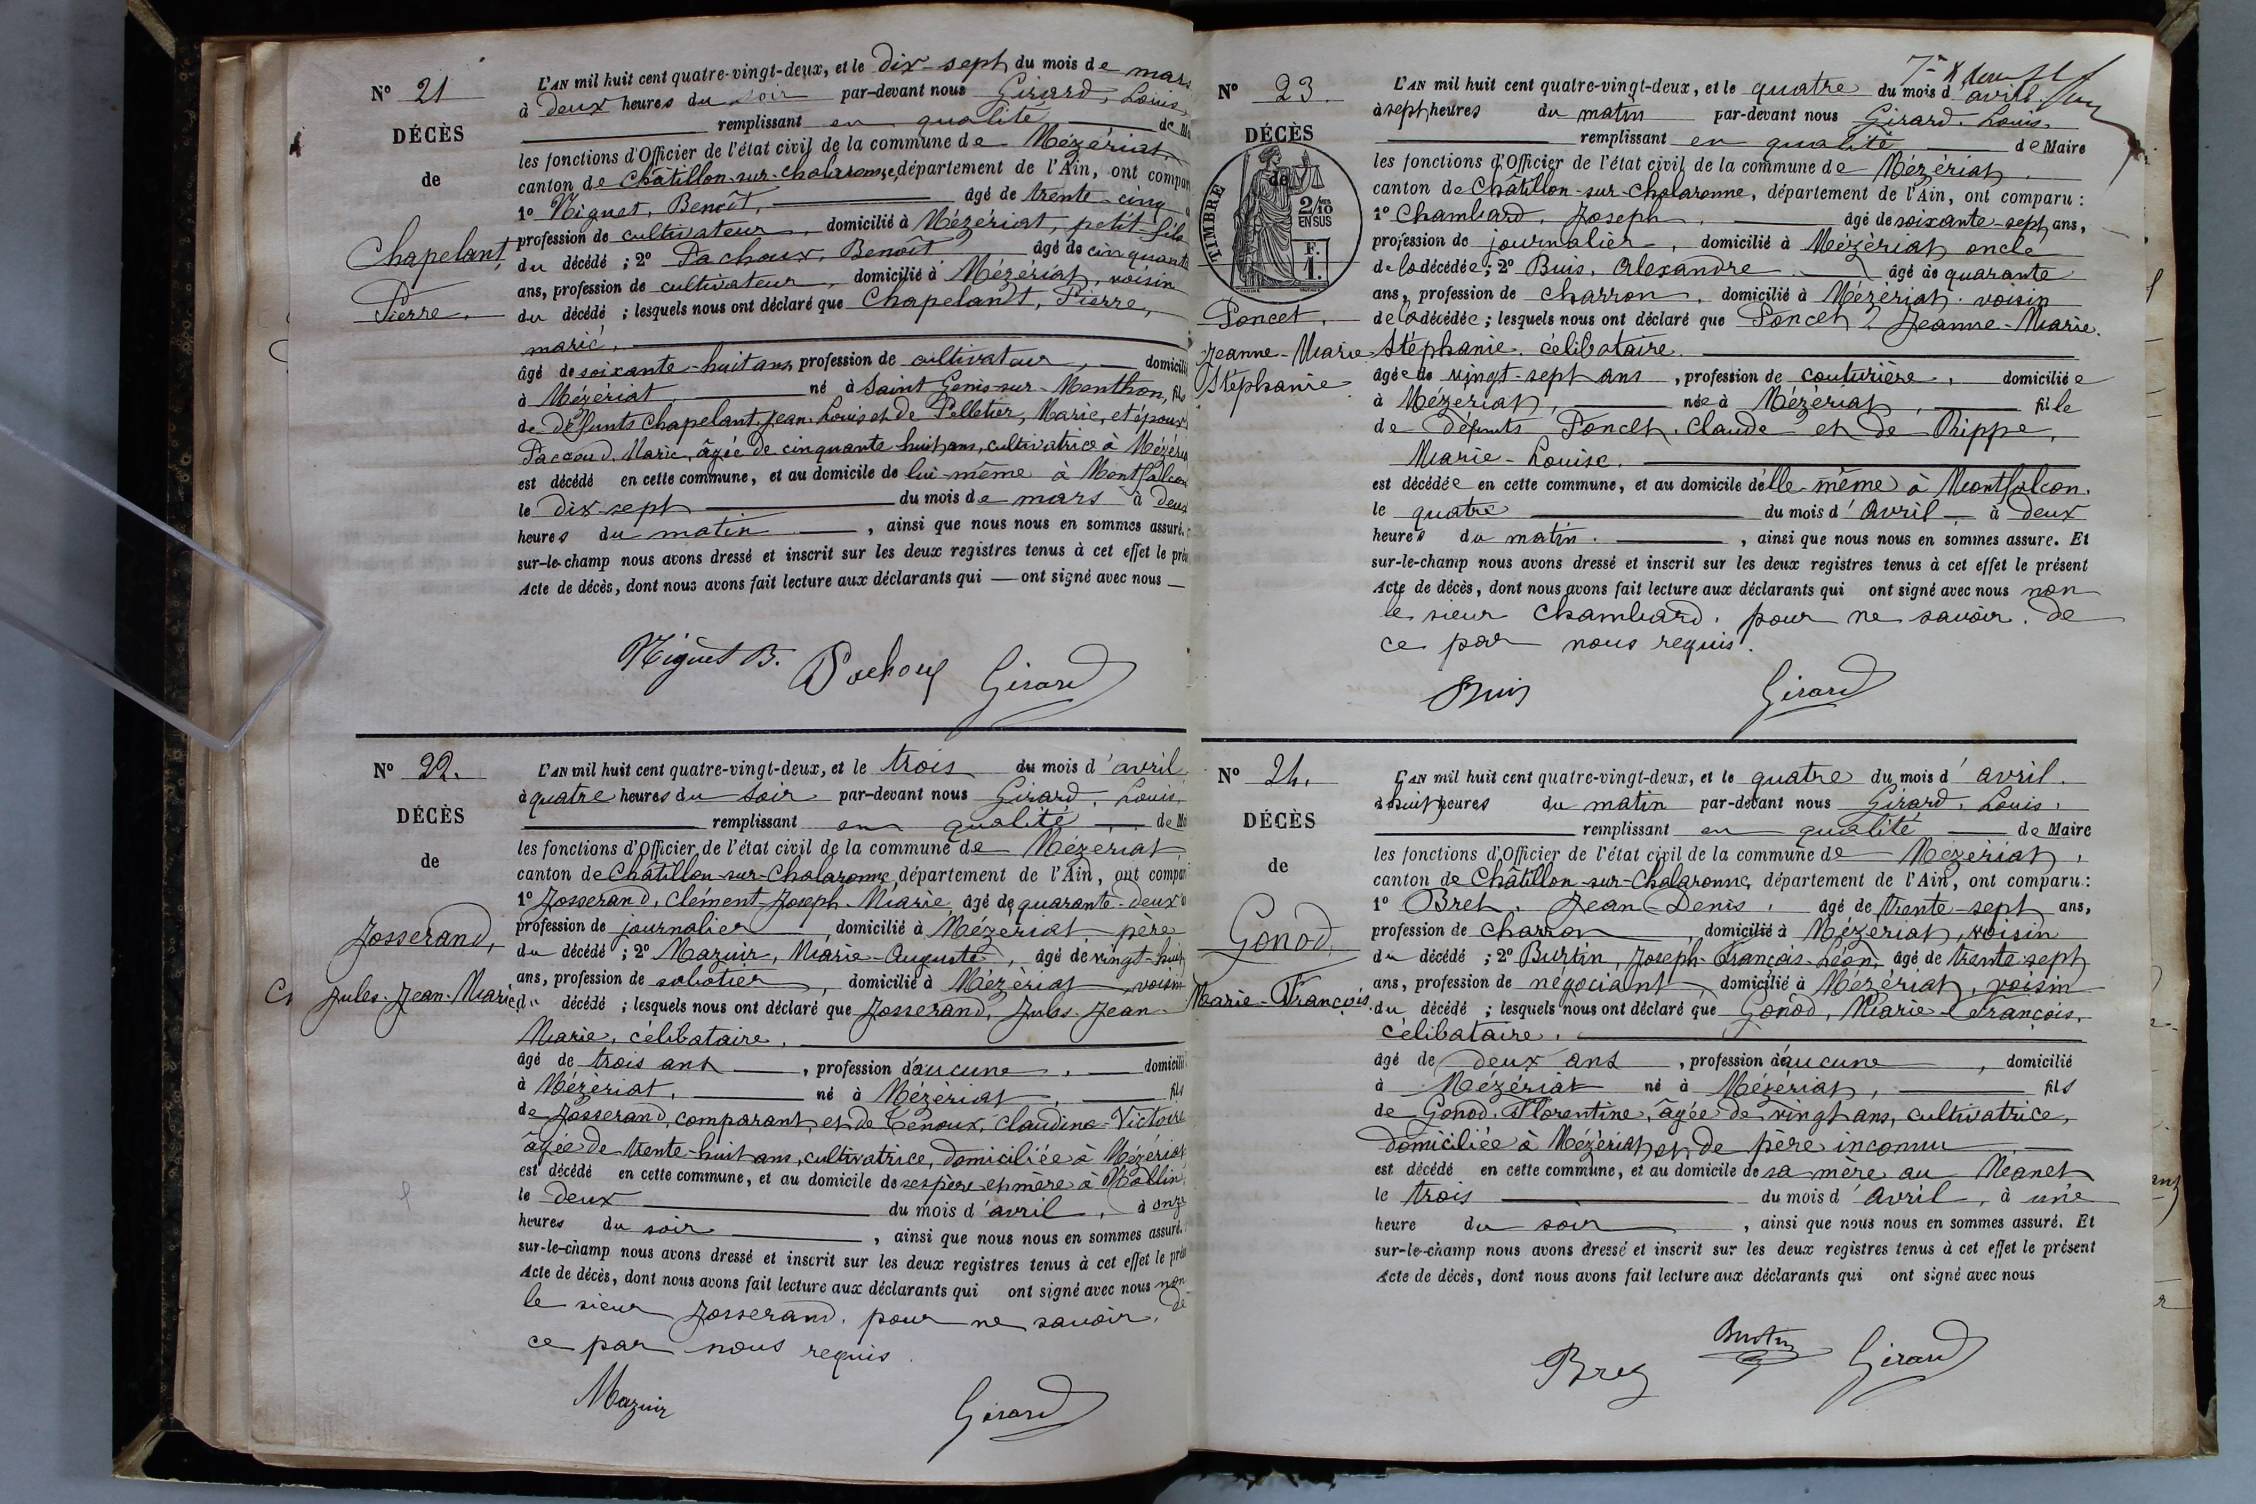 N° 21
DÉCÈS
de
Chapelant,
Pierre.
L'AN mil huit cent quatre-vingt-deux, et le dix-sept du mois de mars
à deux heures du soir par-devant nous Girard, Louis,
remplissant en qualité de M
les fonctions d'Officier de l'état civil de la commune de Mézériat,
canton de Châtillon-sur-Chalaronne, département de l'Ain, ont compar
1° Niguet, Benoît, âgé de trente-cinq
profession de cultivateur, domicilié à Mézériat, petit-fils
du décédé ; 2° Pachoux, Benoît âgé de cinquante
ans, profession de cultivateur, domicilié à Mézériat, voisin
du décédé ; lesquels nous ont déclaré que Chapelant, Pierre,
marié,
âgé de soixante-huit ans, profession de cultivateur, domicilié
à Mézériat, né à Saint Genis-sur-Menthon, fils
de défunts Chapelant, Jean Louis et de Pelletier, Marie, et époux
Paccoud, Marie, âgée de cinquante huit ans, cultivatrice à Mézériat
est décédé en cette commune, et au domicile de lui-même à Montfalcon
le dix sept du mois de mars à deux
heures du matin, ainsi que nous nous en sommes assuré.
sur-le-champ nous avons dressé et inscrit sur les deux registres tenus à cet effet le prés
Acte de décès, dont nous avons fait lecture aux déclarants qui — ont signé avec nous —
Niguet B. Pachoux Girard
N° 22.
DÉCÈS
de
Josserand,
Jules-Jean-Marie
L'AN mil huit cent quatre-vingt-deux, et le trois du mois d'avril
à quatre heures du soir par-devant nous Girard, Louis,
remplissant en qualité de M
les fonctions d'Officier de l'état civil de la commune de Mézériat
canton de Châtillon-sur-Chalaronne, département de l'Ain, ont compar
1° Josserand, Clément-Joseph-Marie, âgé de quarante-deux
profession de journalier, domicilié à Mézériat père
du décédé ; 2° Mazuir, Marie-Auguste, âgé de vingt-huit
ans, profession de sabotier, domicilié à Mézériat, voisin
du décédé ; lesquels nous ont déclaré que Josserand, Jules-Jean-
Marie, célibataire,
âgé de trois ans, profession d'aucune, domicilié
à Mézériat, né à Mézériat, fils
de Josserand, comparant, et de Tenoux, Claudine-Victoire
âgée de trente-huit ans, cultivatrice, domiciliée à Mézériat
est décédé en cette commune, et au domicile de ses père et mère à Mollin
le deux du mois d'avril, à onze
heures du soir, ainsi que nous nous en sommes assuré.
sur-le-champ nous avons dressé et inscrit sur les deux registres tenus à cet effet le prés
Acte de décès, dont nous avons fait lecture aux déclarants qui ont signé avec nous non
le sieur Josserand, pour ne savoir, de
ce par nous requis.
Mazuir Girard
N° 23.
DÉCÈS
de
TIMBRE
2/10 EN SUS
F. 1.
Poncet,
Jeanne-Marie
Stéphanie
L'AN mil huit cent quatre-vingt-deux, et le quatre du mois d'avril
à sept heures du matin par-devant nous Girard, Louis,
remplissant en qualité de Maire
les fonctions d'Officier de l'état civil de la commune de Mézériat,
canton de Châtillon-sur-Chalaronne, département de l'Ain, ont comparu :
1° Chambard, Joseph, âgé de soixante-sept ans,
profession de journalier, domicilié à Mézériat oncle
de la décédée ; 2° Buis, Alexandre âgé de quarante
ans, profession de charron, domicilié à Mézériat voisin
de la décédée ; lesquels nous ont déclaré que Poncet, Jeanne-Marie
Stéphanie, célibataire
âgée de vingt-sept ans, profession de couturière, domiciliée
à Mézériat, née à Mézériat, fille
de défunts Poncet, Claude et de Phippe,
Marie-Louise.
est décédée en cette commune, et au domicile d'elle-même à Montfalcon.
le quatre du mois d'avril à deux
heures du matin, ainsi que nous nous en sommes assuré. Et
sur-le-champ nous avons dressé et inscrit sur les deux registres tenus à cet effet le présent
Acte de décès, dont nous avons fait lecture aux déclarants qui ont signé avec nous non
le sieur Chambard, pour ne savoir, de
ce par nous requis.
Buis Girard
N° 24.
DÉCÈS
de
Gonod,
Marie-François.
L'AN mil huit cent quatre-vingt-deux, et le quatre du mois d'avril.
à huit heures du matin par-devant nous Girard, Louis,
remplissant en qualité de Maire
les fonctions d'Officier de l'état civil de la commune de Mézériat,
canton de Châtillon-sur-Chalaronne, département de l'Ain, ont comparu :
1° Bret, Jean-Denis, âgé de trente-sept ans,
profession de charron, domicilié à Mézériat, voisin
du décédé ; 2° Burtin, Joseph-François-Léon, âgé de trente-sept
ans, profession de négociant, domicilié à Mézériat, voisin
du décédé ; lesquels nous ont déclaré que Gonod, Marie-François,
célibataire,
âgé de deux ans, profession d'aucune, domicilié
à Mézériat né à Mézériat, fils
de Gonod, Florentine, âgée de vingt ans, cultivatrice,
domiciliée à Mézériat, et de père inconnu
est décédé en cette commune, et au domicile de sa mère au Manet
le trois du mois d'avril, à une
heure du soir, ainsi que nous nous en sommes assuré. Et
sur-le-champ nous avons dressé et inscrit sur les deux registres tenus à cet effet le présent
Acte de décès, dont nous avons fait lecture aux déclarants qui ont signé avec nous
Bret Burtin Girard